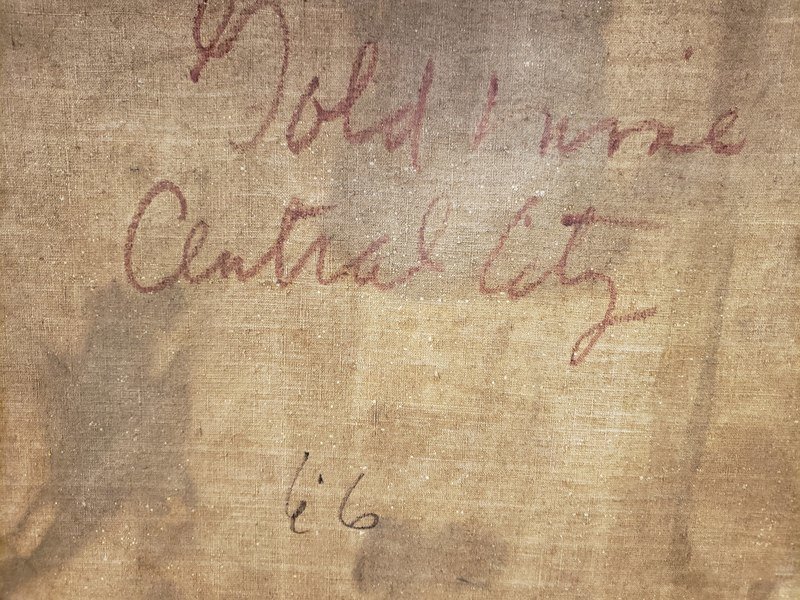 Gold mine
Central City
66